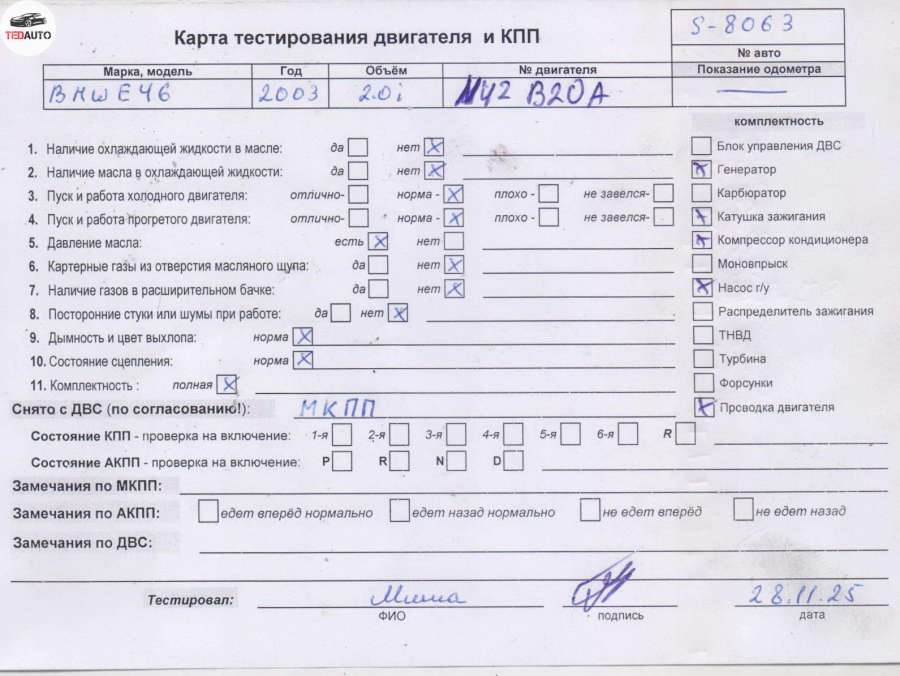 TEDAUTO
Карта тестирования двигателя и КПП
S-8063
№ авто
Марка, модель Год Объём № двигателя Показание одометра
BMW E46 2003 2.0i N42 B20A —
комплектность
1. Наличие охлаждающей жидкости в масле: да нет X Блок управления ДВС
2. Наличие масла в охлаждающей жидкости: да нет X X Генератор
3. Пуск и работа холодного двигателя: отлично- норма - X плохо - не завелся- Карбюратор
4. Пуск и работа прогретого двигателя: отлично- норма - X плохо - не завелся- X Катушка зажигания
5. Давление масла: есть X нет X Компрессор кондиционера
6. Картерные газы из отверстия масляного щупа: да нет X Моновпрыск
7. Наличие газов в расширительном бачке: да нет X X Насос г/у
8. Посторонние стуки или шумы при работе: да нет X Распределитель зажигания
9. Дымность и цвет выхлопа: норма X ТНВД
10. Состояние сцепления: норма X Турбина
11. Комплектность : полная X Форсунки
Снято с ДВС (по согласованию!): МКПП X Проводка двигателя
Состояние КПП - проверка на включение: 1-я 2-я 3-я 4-я 5-я 6-я R
Состояние АКПП - проверка на включение: P R N D
Замечания по МКПП:
Замечания по АКПП: едет вперёд нормально едет назад нормально не едет вперёд не едет назад
Замечания по ДВС:
Тестировал: Миша 28.11.25
ФИО подпись дата